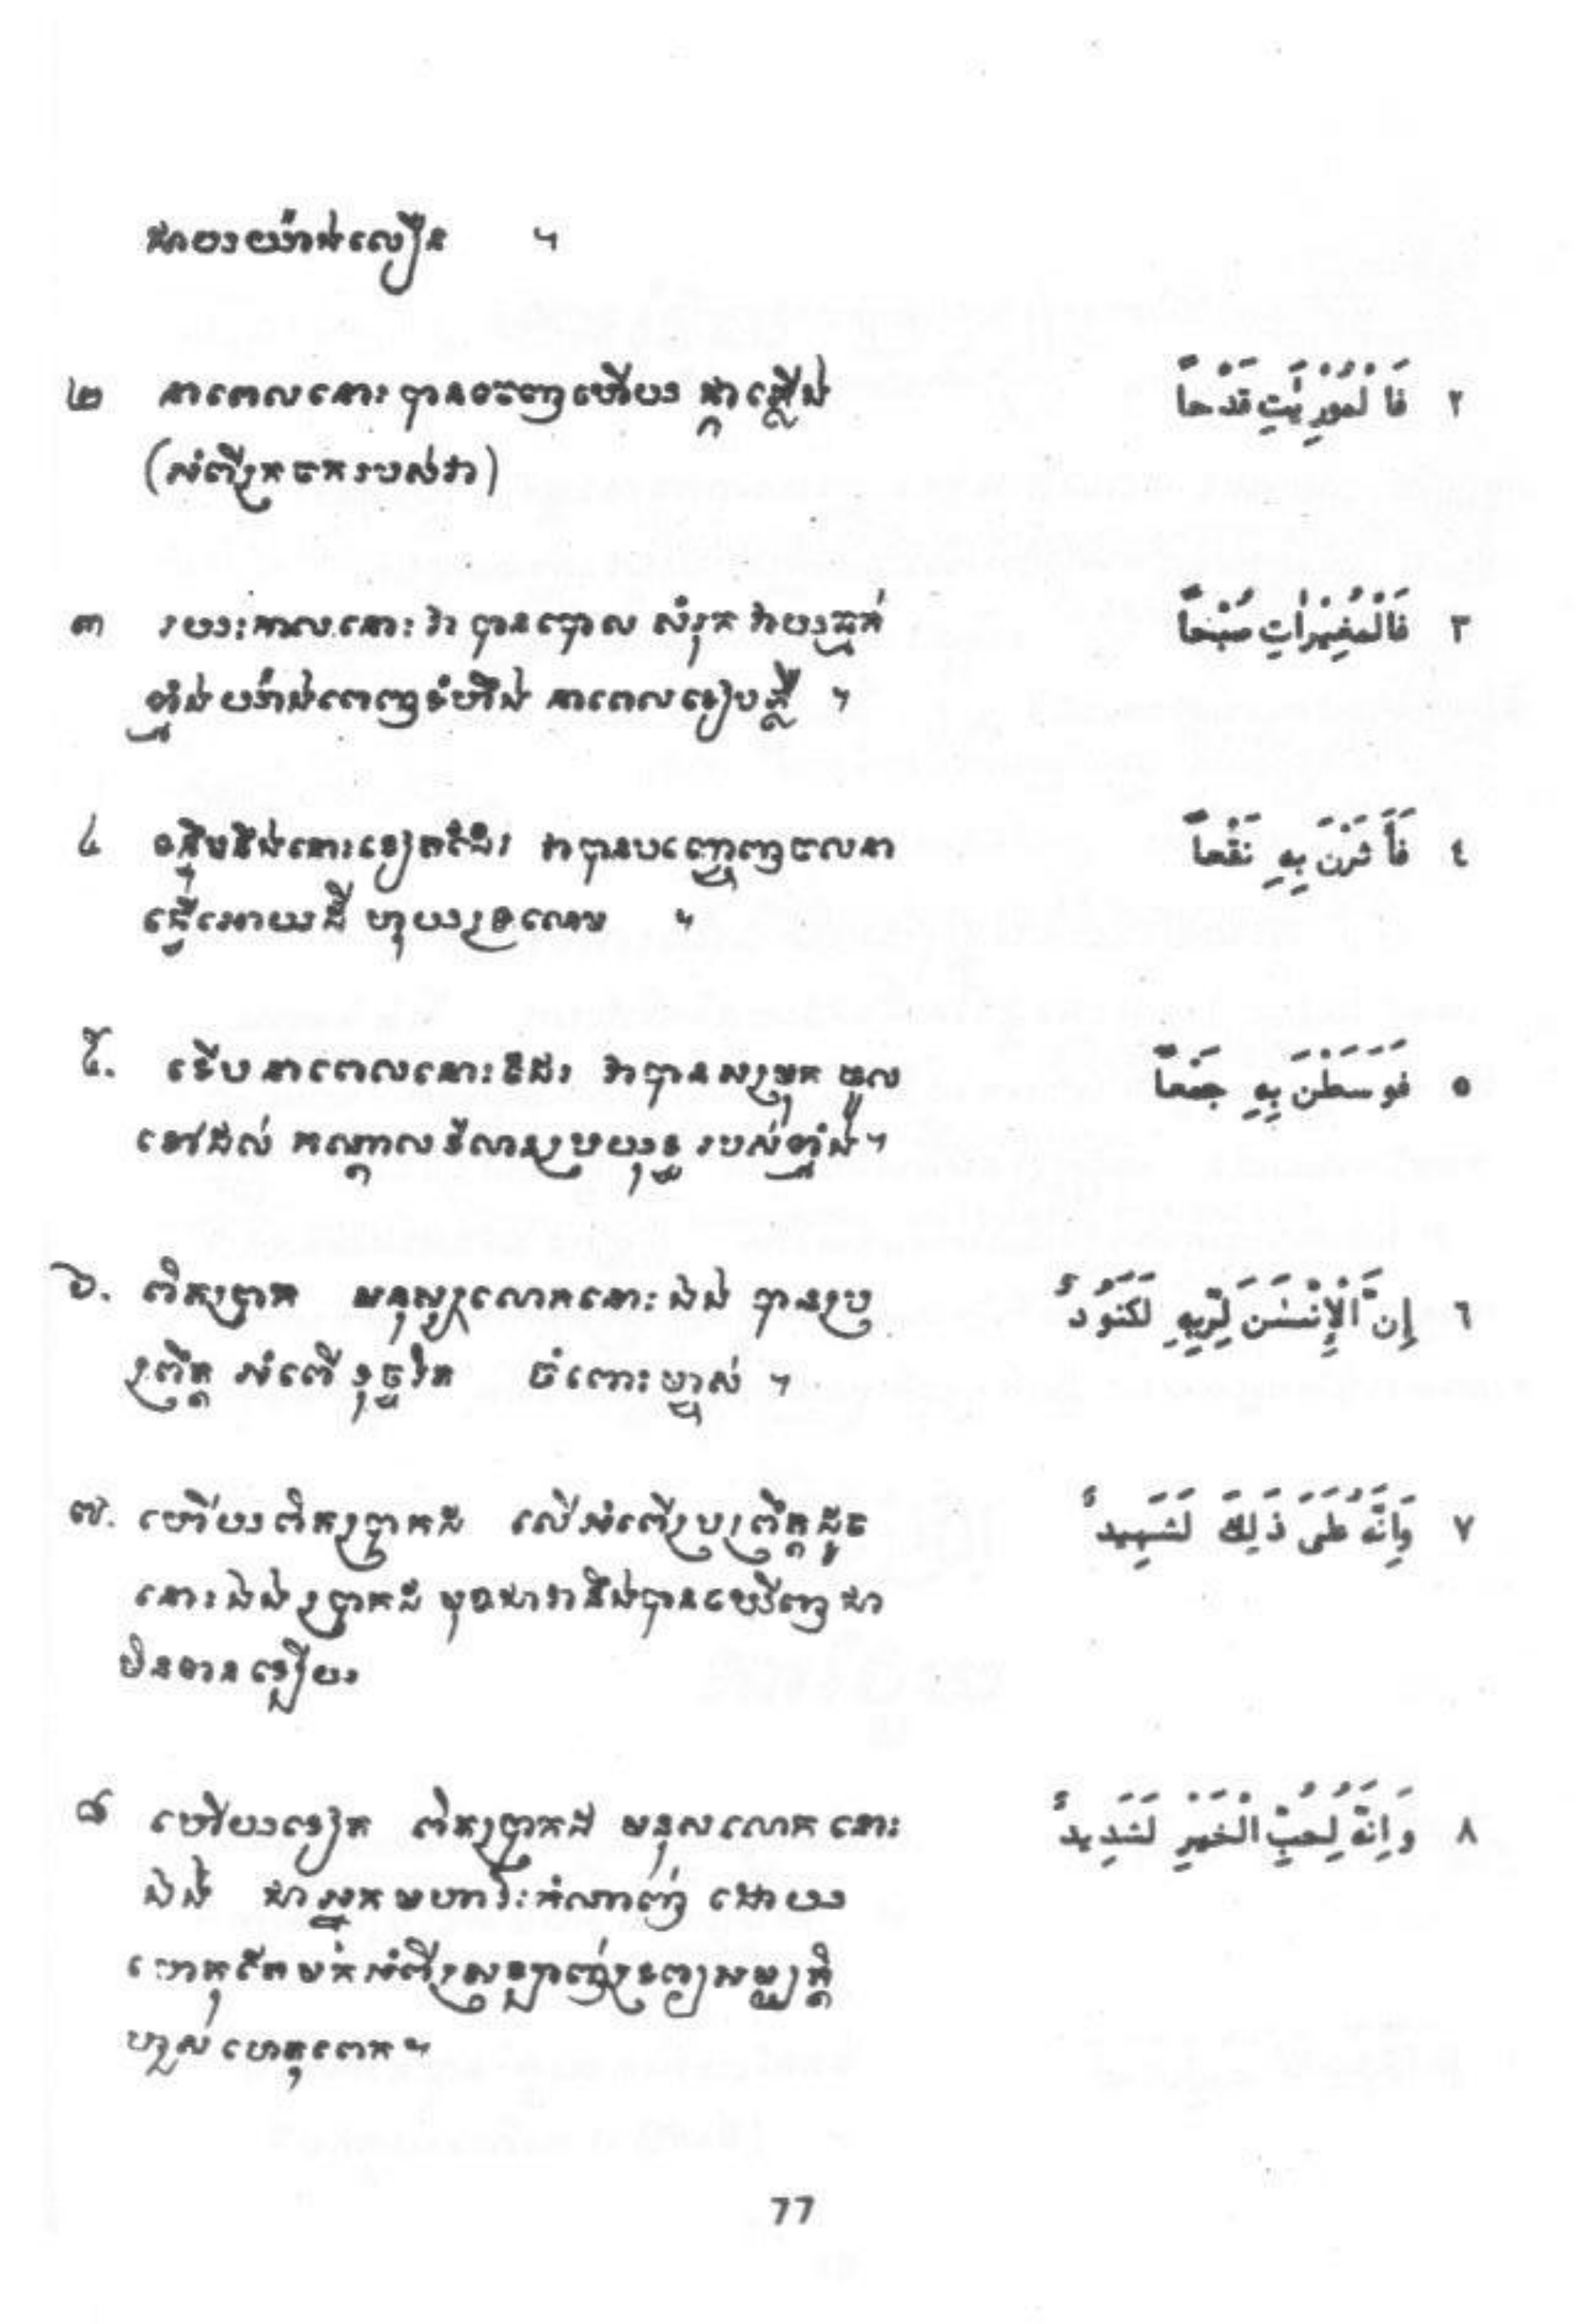 ដោយយ៉ាងលឿន ។
២ នាពេលនោះបានចេញហើយ ផ្កាភ្លើង
(អំពីក្រចករបស់វា)
٢ فَالْمُورِيٰتِ قَدْحاً
៣ រយះកាលនោះ វាបានបោល សំរុក វាយធ្មក់
ពួកប្រឆាំងពេញទំហឹង នាពេលទៀបភ្លឺ ។
٣ فَالْمُغِيْرٰاتِ صُبْحاً
៤ នឹងនោះទៀតក៏ដី វាបានបញ្ចេញចលនា
ធ្វើអោយដី ហុយទ្រលោម ។
٤ فَأَ ثَرْنَ بِهِ نَقْعاً
៥. ទើបនាពេលនោះក៏ដោយ វាបានសម្រុក ចូល
ទៅដល់ កណ្តាលទីលានប្រយុទ្ធ របស់ពួកគេ។
٥ فَوَ سَطْنَ بِهِ جَمْعاً
៦. ពិតប្រាកដ មនុស្សលោកនោះឯង បានប្រ
ព្រឹត្ត អំពើទុច្ចរិត ចំពោះម្ចាស់ ។
٦ إِنَّ الْإِنْسٰنَ لِرَبِّهِ لَكَنُوْدٌ
៧. ហើយពិតប្រាកដ លើអំពើប្រព្រឹត្តដូច
នោះឯងប្រាកដ មុខជាវានឹងបានឃើញជា
មិនខានឡើយ
٧ وَاِنَّهُ عَلىٰ ذٰلِكَ لَشَهِيدٌ
៨ ហើយទៀត ពិតប្រាកដ មនុសលោក នោះ
ឯង ជាអ្នកមហារិះកំណាញ់ ដោយ
ហេតុតែមកអំពីស្រឡាញ់ទ្រព្យសម្បត្តិ
ហួស ហេតុពេក។
٨ وَ اِنَّهُ لِحُبِّ الْخَيْرِ لَشَدِيدٌ
77